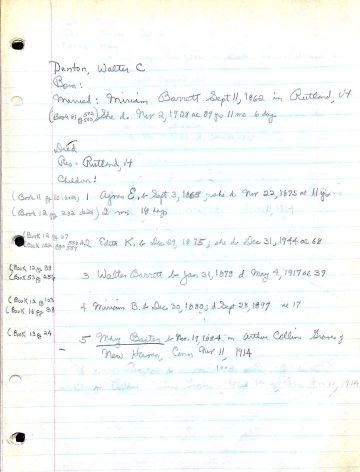 Dunton, Walter C
Born:
Married: Miriam Barrett Sept 11, 1862 in Rutland, Vt
(Book 81 pg She d Nov 2, 1928 ae 89 yr 11 mo 6 day
Died
Res - Rutland, Vt
Children:
(Book 11 pg 1 Agnes E. b Sept 3, 1865; she d Nov 22, 1875 ae 11 yr
(Book 12 pg 2 mo 18 day
(Book 12 pg 67
(Book 2 Edith K. b Dec 29, 1875; she d Dec 31, 1944 ae 68
(Book 12 pg 98
(Book 3 Walter Barrett b Jan 31, 1878 d May 4, 1917 ae 39
(Book 13 pg 103
(Book 16 pg 38 4 Miriam B. b Dec 30, 1880; d Sept 28, 1897 ae 17
(Book 13 pg 24 5 May Baxter b Nov. 19, 1884 m Arthur Collins of
New Haven, Conn Nov 11, 1914